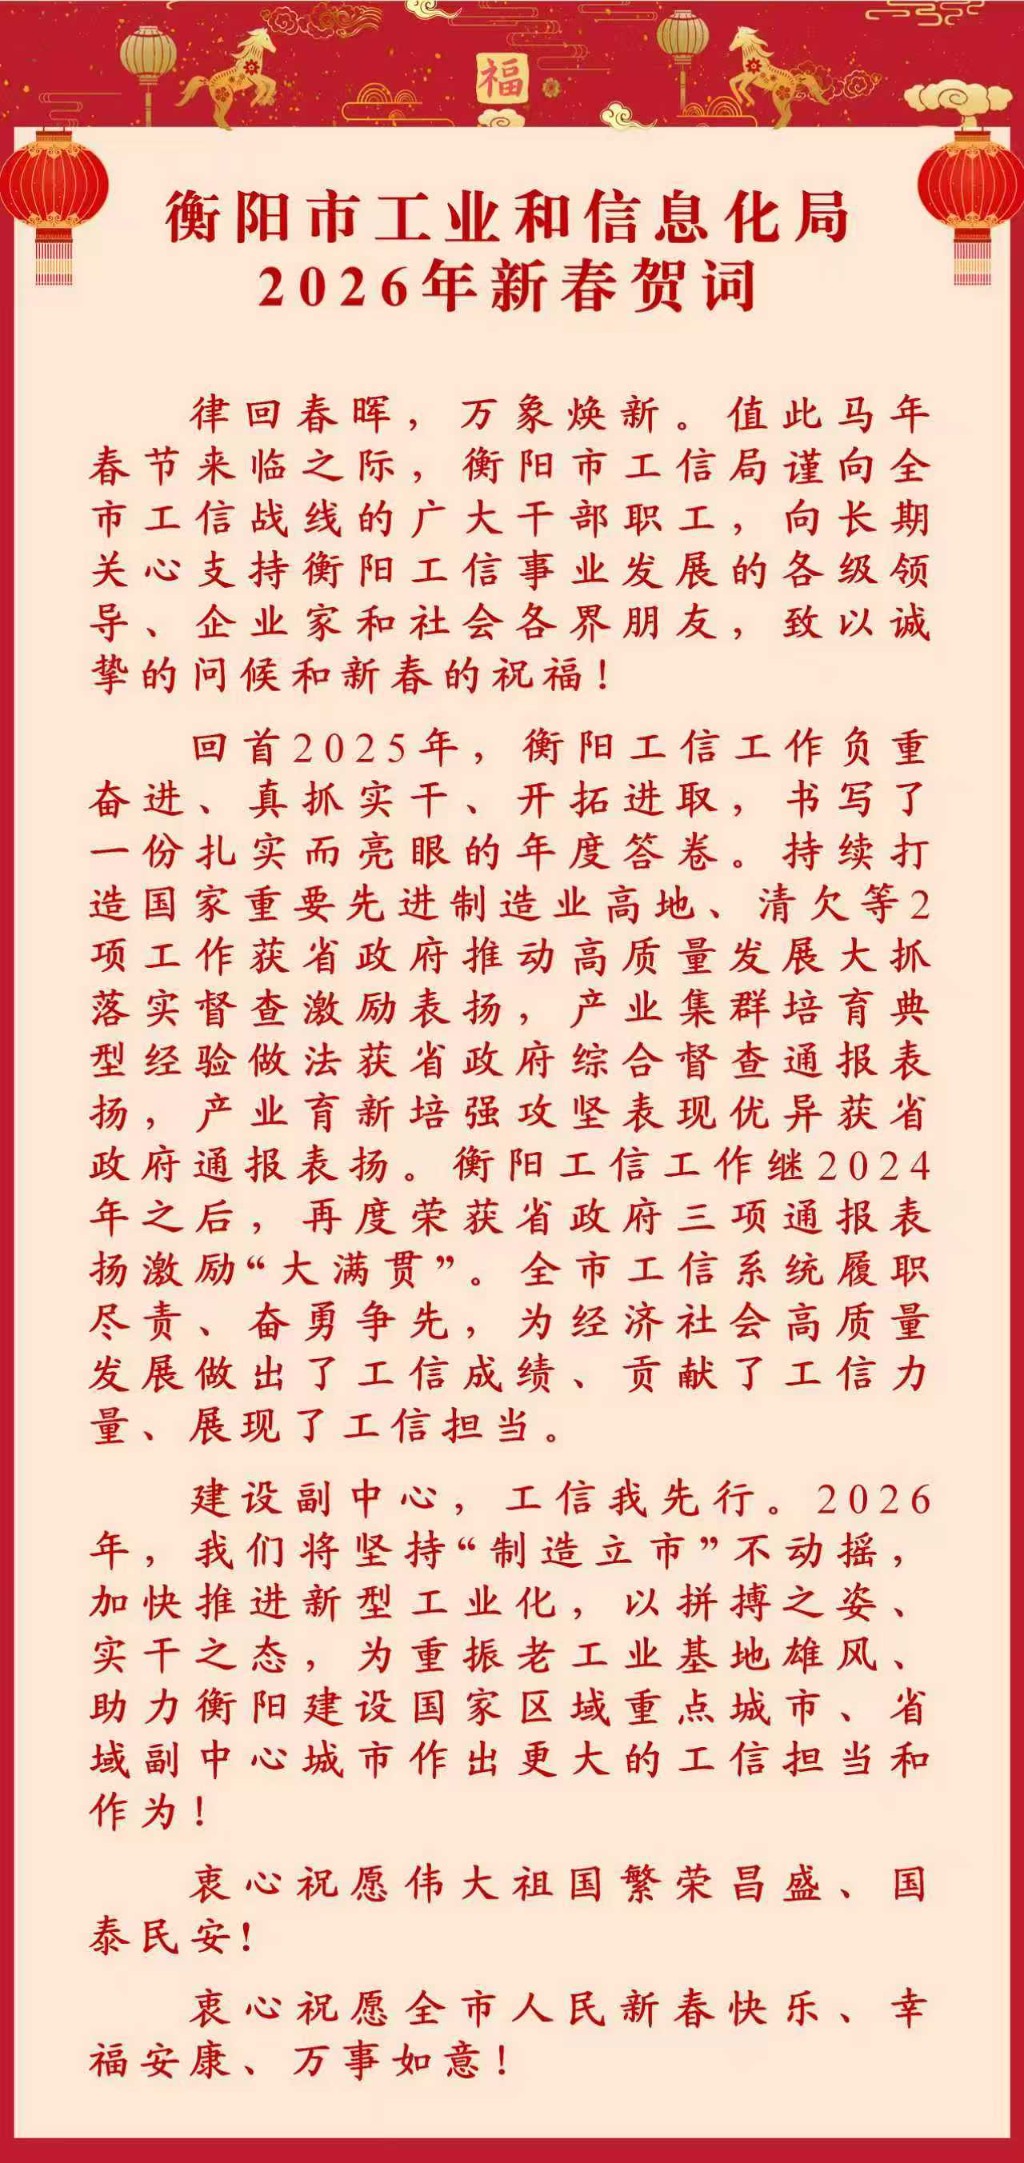 福
衡阳市工业和信息化局
2026年新春贺词
律回春晖，万象焕新。值此马年
春节来临之际，衡阳市工信局谨向全
市工信战线的广大干部职工，向长期
关心支持衡阳工信事业发展的各级领
导、企业家和社会各界朋友，致以诚
挚的问候和新春的祝福！
回首2025年，衡阳工信工作负重
奋进、真抓实干、开拓进取，书写了
一份扎实而亮眼的年度答卷。持续打
造国家重要先进制造业高地、清欠等2
项工作获省政府推动高质量发展大抓
落实督查激励表扬，产业集群培育典
型经验做法获省政府综合督查通报表
扬，产业育新培强攻坚表现优异获省
政府通报表扬。衡阳工信工作继2024
年之后，再度荣获省政府三项通报表
扬激励“大满贯”。全市工信系统履职
尽责、奋勇争先，为经济社会高质量
发展做出了工信成绩、贡献了工信力
量、展现了工信担当。
建设副中心，工信我先行。2026
年，我们将坚持“制造立市”不动摇，
加快推进新型工业化，以拼搏之姿、
实干之态，为重振老工业基地雄风、
助力衡阳建设国家区域重点城市、省
域副中心城市作出更大的工信担当和
作为！
衷心祝愿伟大祖国繁荣昌盛、国
泰民安！
衷心祝愿全市人民新春快乐、幸
福安康、万事如意！